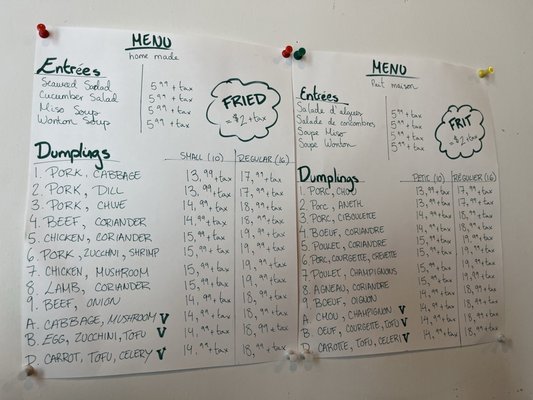 MENU
home made
Entrées
Seaweed Salad 5.99 + tax
Cucumber Salad 5.99 + tax
Miso Soup 5.99 + tax
Wonton Soup 5.99 + tax
FRIED
= $2 + tax
Dumplings SMALL (10) REGULAR (16)
1. PORK, CABBAGE 13.99 + tax 17.99 + tax
2. PORK, DILL 13.99 + tax 17.99 + tax
3. PORK, CHIVE 14.99 + tax 18.99 + tax
4. BEEF, CORIANDER 14.99 + tax 18.99 + tax
5. CHICKEN, CORIANDER 15.99 + tax 19.99 + tax
6. PORK, ZUCCHINI, SHRIMP 15.99 + tax 19.99 + tax
7. CHICKEN, MUSHROOM 15.99 + tax 19.99 + tax
8. LAMB, CORIANDER 15.99 + tax 19.99 + tax
9. BEEF, ONION 14.99 + tax 18.99 + tax
A. CABBAGE, MUSHROOM V 14.99 + tax 18.99 + tax
B. EGG, ZUCCHINI, TOFU V 14.99 + tax 18.99 + tax
D. CARROT, TOFU, CELERY V 14.99 + tax 18.99 + tax
MENU
Fait maison
Entrées
Salade d'algues 5.99 + tax
Salade de concombres 5.99 + tax
Soupe Miso 5.99 + tax
Soupe Wonton 5.99 + tax
FRIT
= $2 + tax
Dumplings PETIT (10) RÉGULIER (16)
1. PORC, CHOU 13.99 + tax 17.99 + tax
2. PORC, ANETH 13.99 + tax 17.99 + tax
3. PORC, CIBOULETTE 14.99 + tax 18.99 + tax
4. BOEUF, CORIANDRE 14.99 + tax 18.99 + tax
5. POULET, CORIANDRE 15.99 + tax 19.99 + tax
6. PORC, COURGETTE, CREVETTE 15.99 + tax 19.99 + tax
7. POULET, CHAMPIGNONS 15.99 + tax 19.99 + tax
8. AGNEAU, CORIANDRE 15.99 + tax 19.99 + tax
9. BOEUF, OIGNON 14.99 + tax 18.99 + tax
A. CHOU, CHAMPIGNON V 14.99 + tax 18.99 + tax
B. OEUF, COURGETTE, TOFU V 14.99 + tax 18.99 + tax
D. CAROTTE, TOFU, CELERI V 14.99 + tax 18.99 + tax